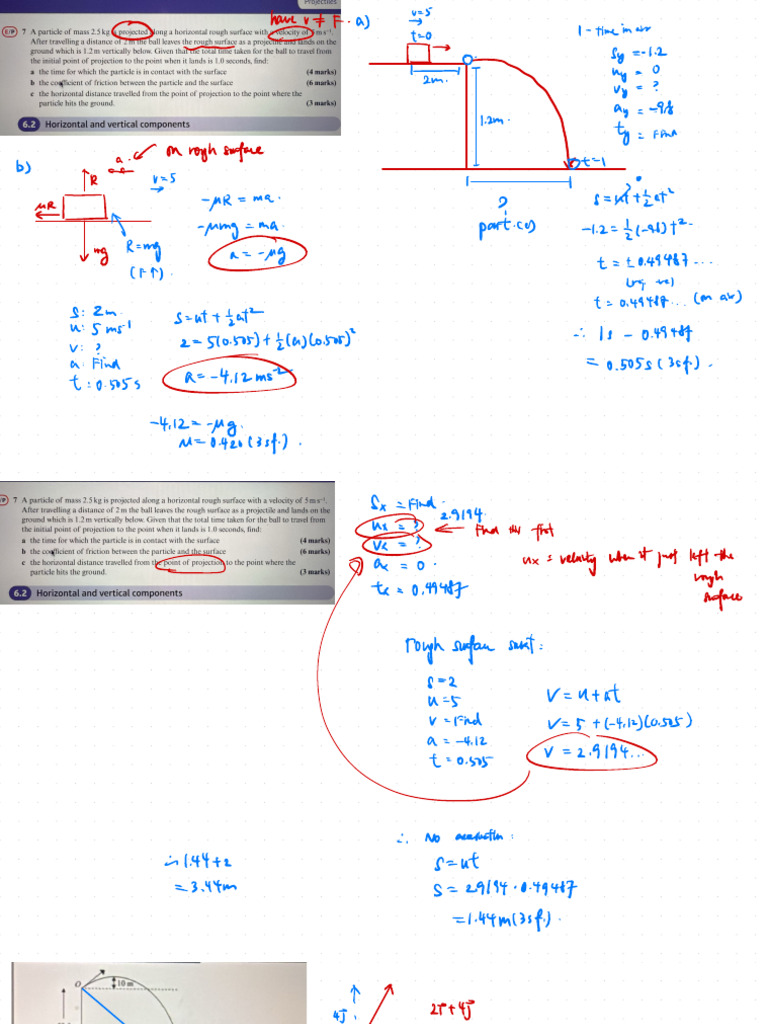 Projectiles
have v ≠ F.
E/P 7 A particle of mass 2.5 kg is projected along a horizontal rough surface with a velocity of 5 m s⁻¹.
After travelling a distance of 2 m the ball leaves the rough surface as a projectile and lands on the
ground which is 1.2 m vertically below. Given that the total time taken for the ball to travel from
the initial point of projection to the point when it lands is 1.0 seconds, find:
a the time for which the particle is in contact with the surface (4 marks)
b the coefficient of friction between the particle and the surface (6 marks)
c the horizontal distance travelled from the point of projection to the point where the
particle hits the ground. (3 marks)
6.2 Horizontal and vertical components
a)
v=5
t=0
2m.
1.2m.
t=1
?
part.(c)
1 - time in air
Sy = -1.2
uy = 0
vy = ?
ay = -9.8
ty = Find
s = ut + ½at²
0
-1.2 = ½(-9.8)t²
t = ± 0.49487...
t = 0.49487... (in air)
∴ 1s - 0.49487
= 0.505s (3sf.).
b)
a.
on rough surface
R
v=5
μR
mg
R=mg
(R↑).
-μR = ma.
-μmg = ma.
a = -μg
S: 2m
u: 5 ms⁻¹
v: ?
a: Find
t: 0.505s
S=ut + ½at²
2 = 5(0.505) + ½(a)(0.505)²
a = -4.12 ms⁻²
-4.12 = -μg.
μ = 0.420 (3sf.).
P 7 A particle of mass 2.5 kg is projected along a horizontal rough surface with a velocity of 5 m s⁻¹.
After travelling a distance of 2 m the ball leaves the rough surface as a projectile and lands on the
ground which is 1.2 m vertically below. Given that the total time taken for the ball to travel from
the initial point of projection to the point when it lands is 1.0 seconds, find:
a the time for which the particle is in contact with the surface (4 marks)
b the coefficient of friction between the particle and the surface (6 marks)
c the horizontal distance travelled from the point of projection to the point where the
particle hits the ground. (3 marks)
6.2 Horizontal and vertical components
Sx = Find.
2.9194
ux = ?
Find this first
vx = ?
ux = velocity when it just left the
rough
surface
ax = 0.
tx = 0.49487
rough surface :
S=2
u=5
v = Find
a = -4.12
t = 0.505
V = u + at
V = 5 + (-4.12)(0.505)
V = 2.9194...
∴ No acceleration :
S = ut
S = 2.9194 · 0.49487
= 1.44m (3sf.).
∴ 1.44 + 2
= 3.44m
O
10 m
4j.
2i + 4j